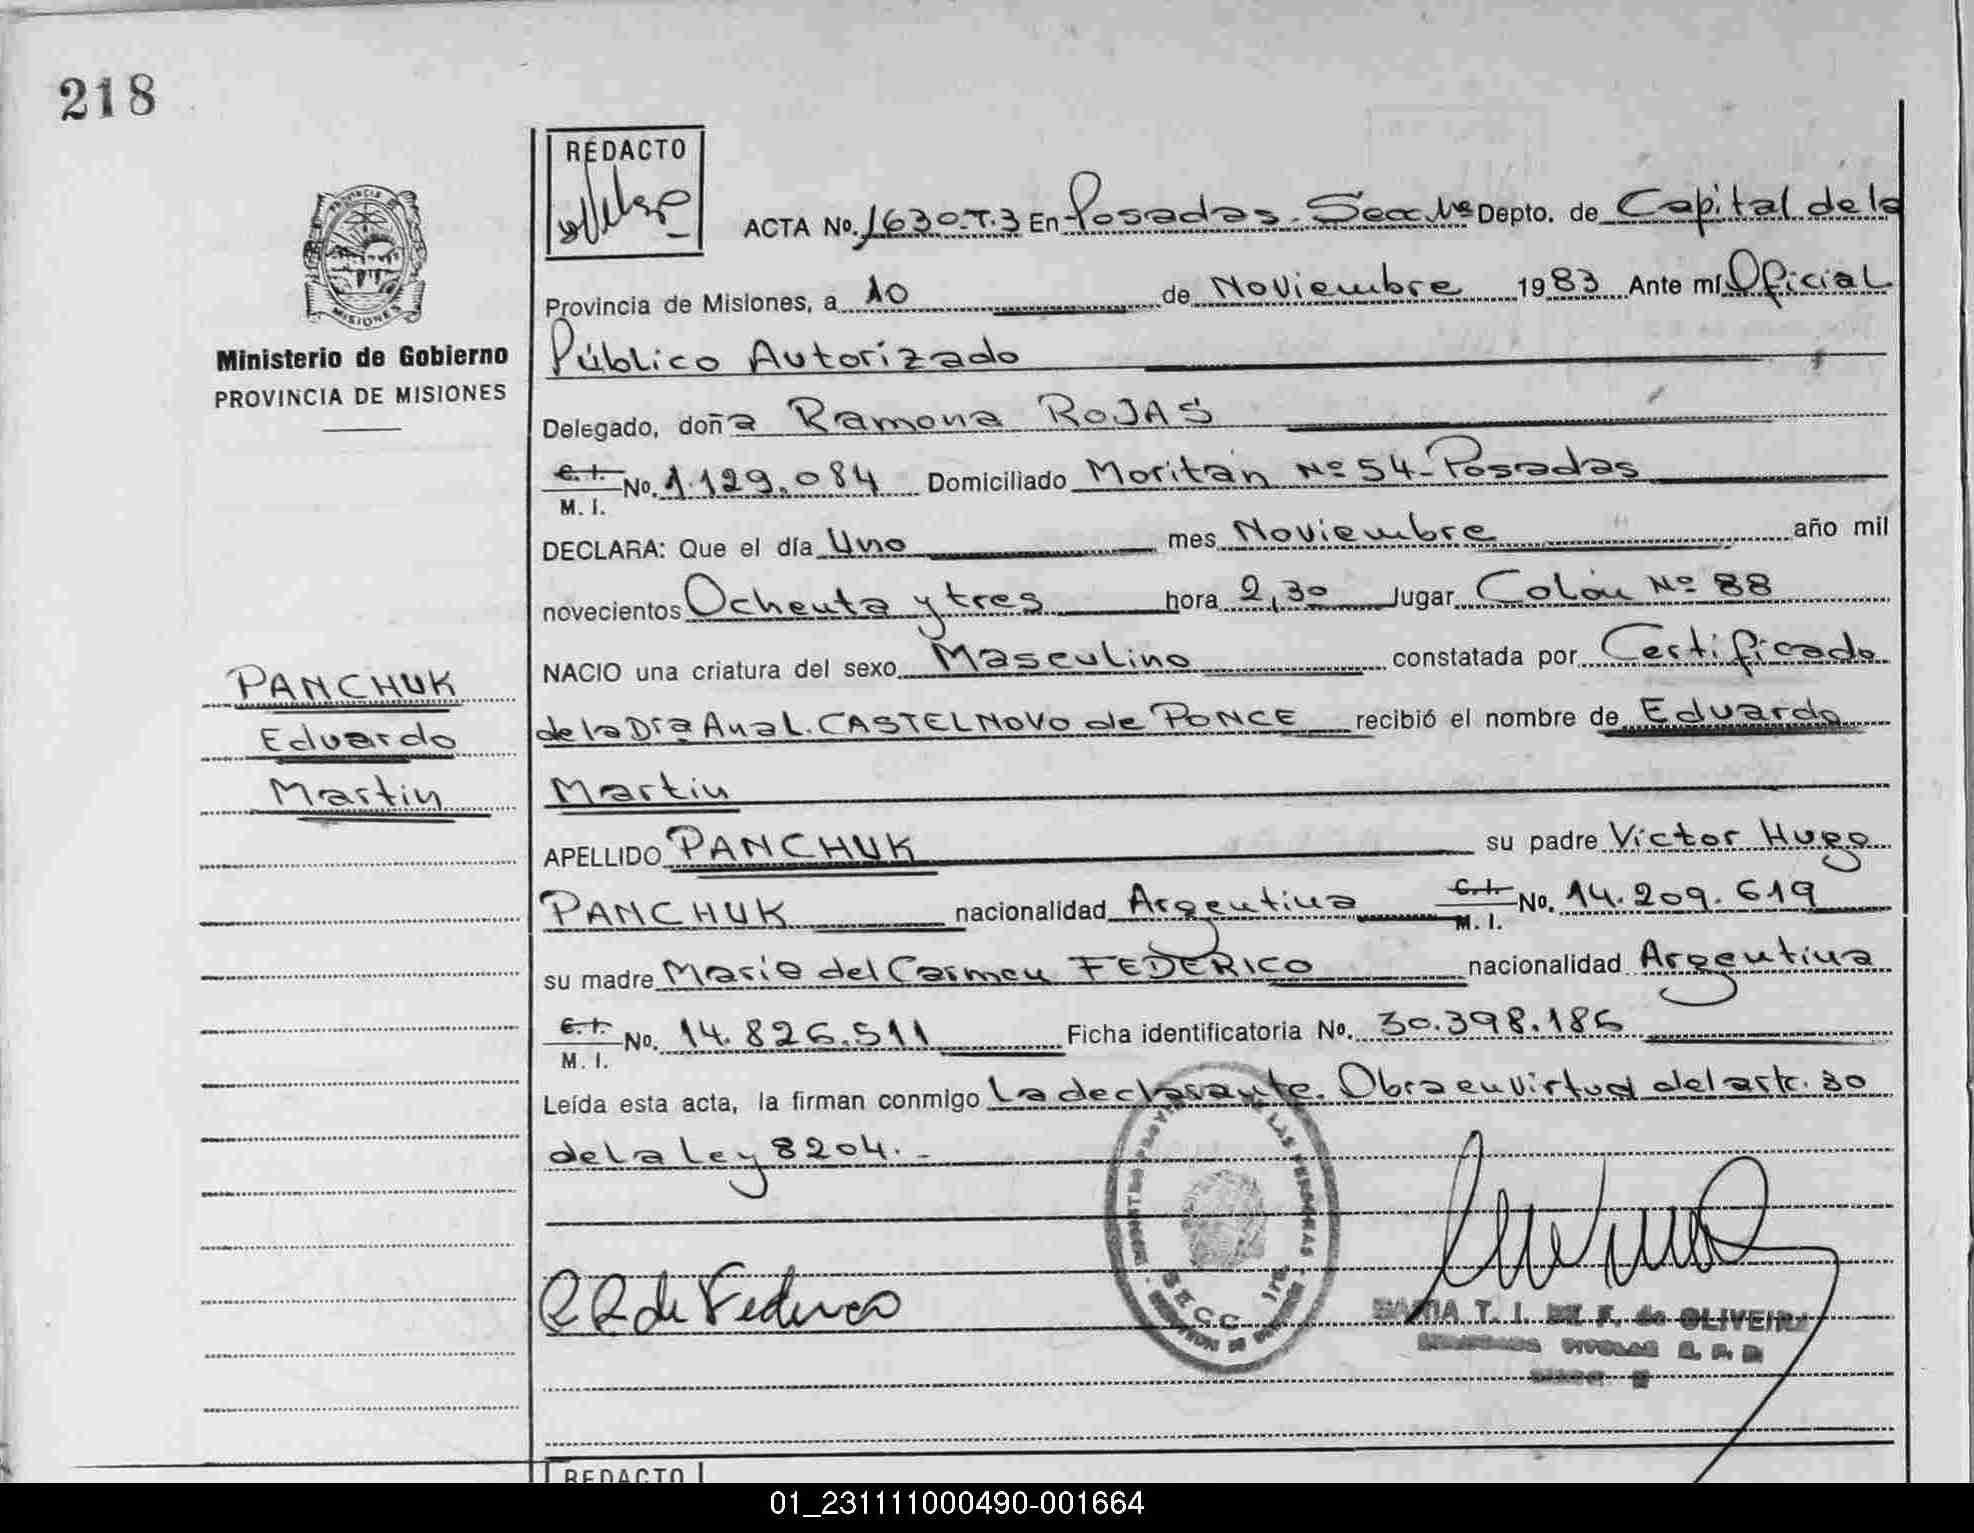 218
REDACTO
ACTA No. 1630-T.3 En Posadas-Secc. 1ra Depto. de Capital de la
Provincia de Misiones, a 10 de Noviembre 1983 Ante mí Oficial
Público Autorizado
PROVINCIA DE
MISIONES
Ministerio de Gobierno
PROVINCIA DE MISIONES
Delegado, doña Ramona ROJAS
C. I.
M. I. No. 1.129.084 Domiciliado Moritán Nº 54-Posadas
DECLARA: Que el día Uno mes Noviembre año mil
novecientos Ochenta y tres hora 2,30 lugar Colón Nº 88
NACIO una criatura del sexo Masculino constatada por Certificado
de la Dra Ana L. CASTELNOVO de PONCE recibió el nombre de Eduardo
Martin
PANCHUK
Eduardo
Martin
APELLIDO PANCHUK su padre Víctor Hugo
PANCHUK nacionalidad Argentina C. I.
M. I. No. 14.209.619
su madre María del Carmen FEDERICO nacionalidad Argentina
C. I.
M. I. No. 14.826.511 Ficha identificatoria No. 30.398.186
Leída esta acta, la firman conmigo La declarante. Obra en virtud del artc. 30
de la Ley 8204.-
R R de Federico
LAS PERSONAS
SECC. 1ra.
T. I. F. de OLIVEIRA
REDACTO
01_231111000490-001664